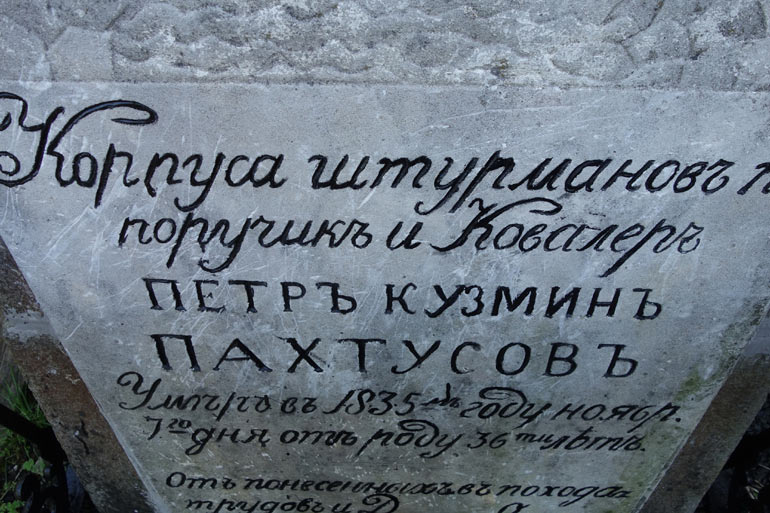 Корпуса штурмановъ п
поручикъ и Ковалеръ
ПЕТРЪ КУЗМИНЪ
ПАХТУСОВЪ
Умъръ въ 1835-мъ году ноябр.
7го дня отъ роду 36ти лѣтъ.
Отъ понесенныхъ въ похода
трудовъ и